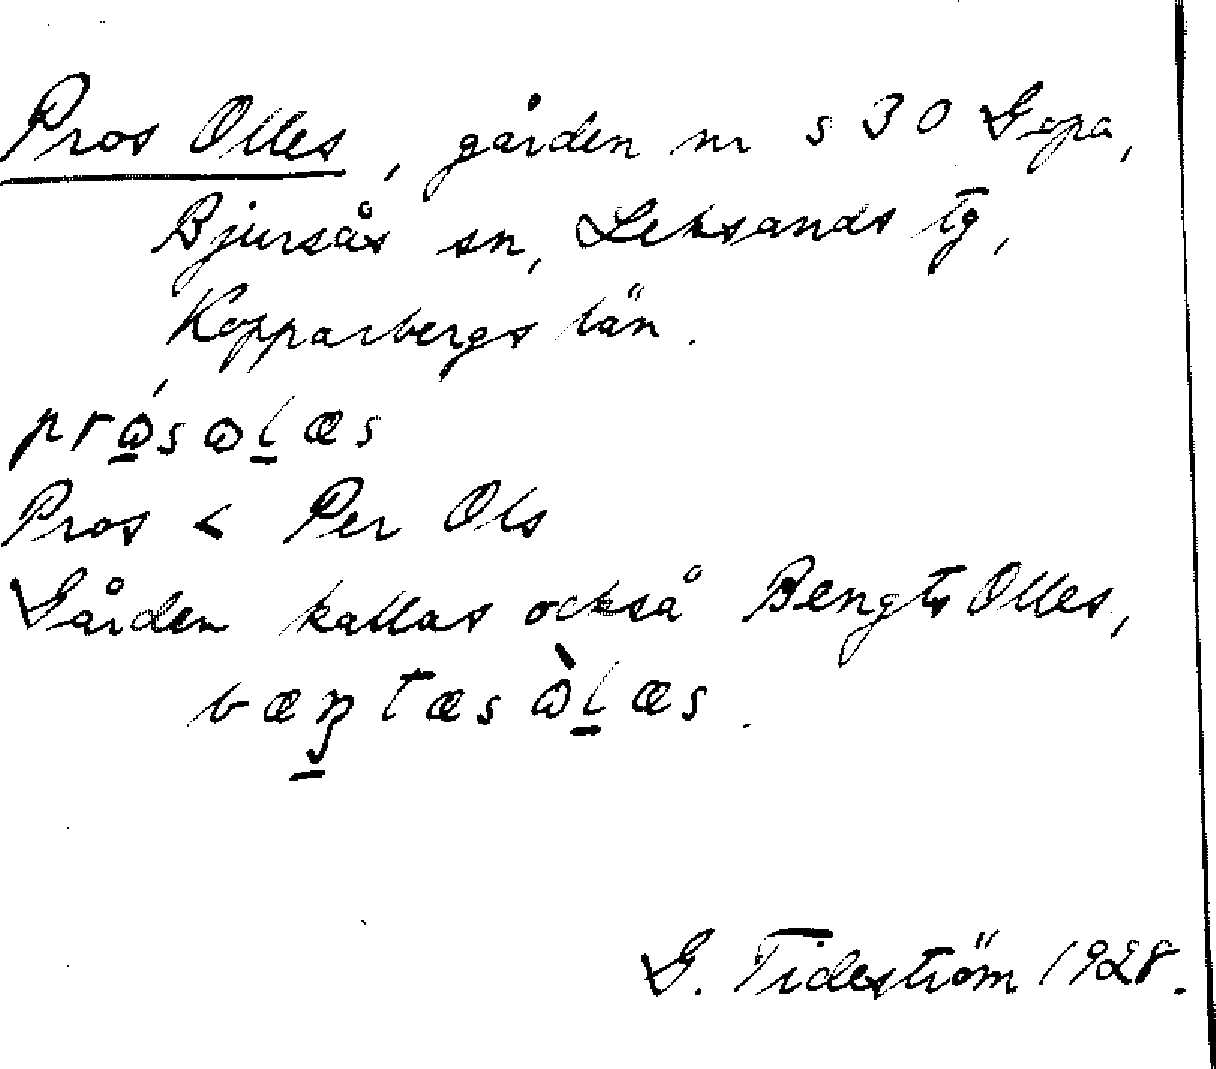 Pros Olles, gården nr s 30 Gopa,
Bjursås sn, Leksands tg,
Kopparbergs län.
Pros < Per Ols
Gården kallas också Bengts Olles,
G. Tideström 1928.